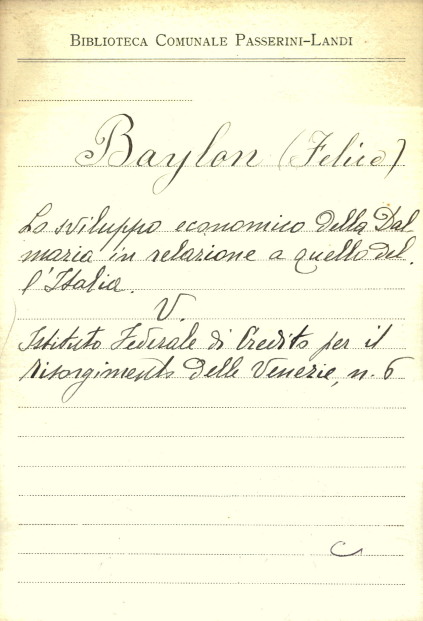 BIBLIOTECA COMUNALE PASSERINI-LANDI
Baylon (Felice)
Lo sviluppo economico della Dal
mazia in relazione a quello del
l'Italia.
V.
Istituto Federale di Credito per il
risorgimento delle Venezie, n. 6